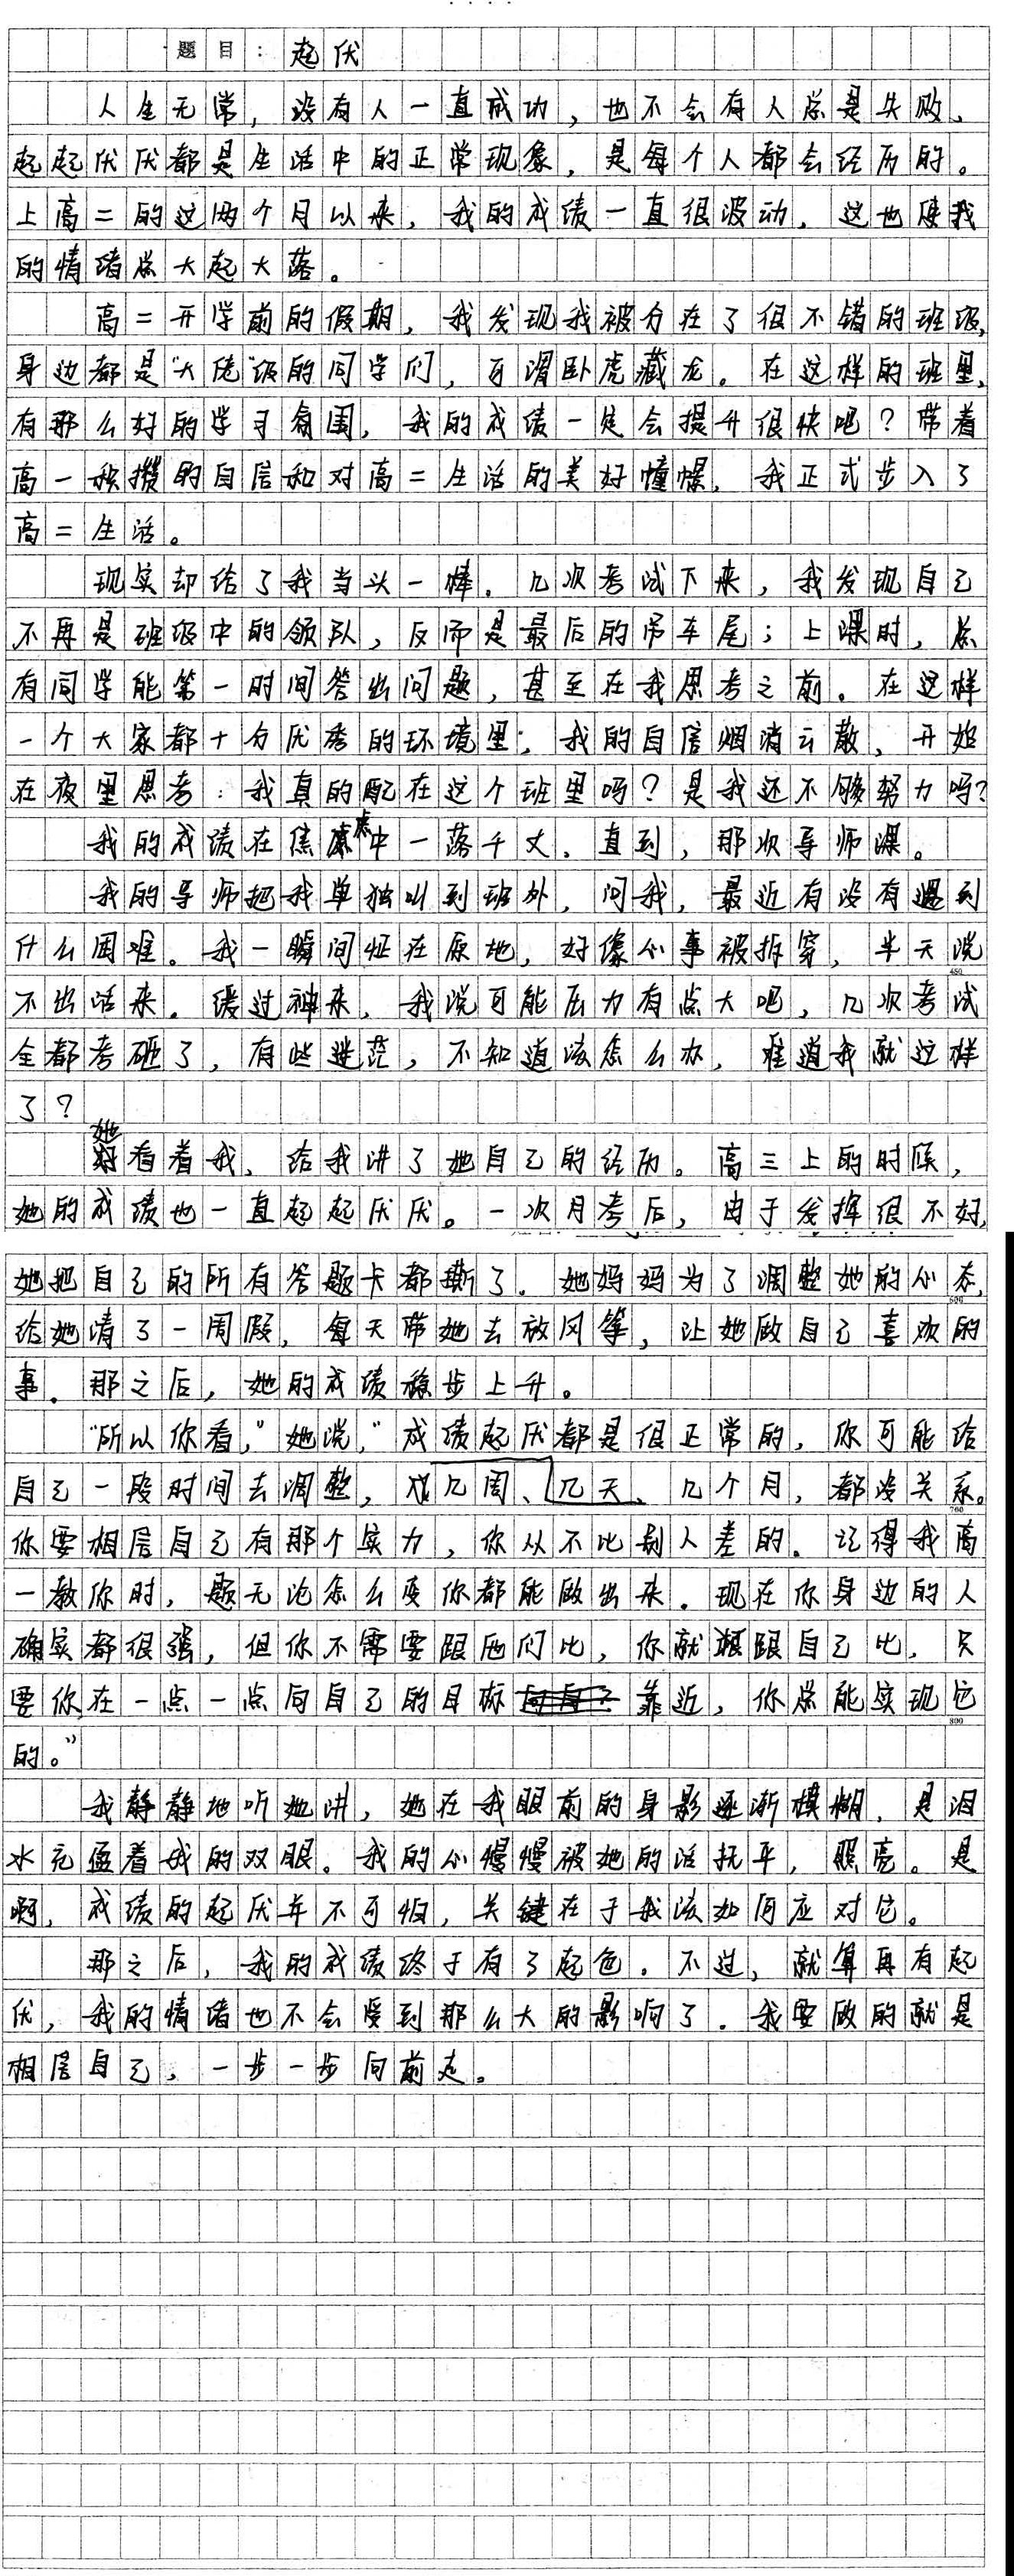 题目：起伏
人生无常，没有人一直成功，也不会有人总是失败。
起起伏伏都是生活中的正常现象，是每个人都会经历的。
上高二的这两个月以来，我的成绩一直很波动，这也使我
的情绪总大起大落。
高二开学前的假期，我发现我被分在了很不错的班级，
身边都是“大佬”级的同学们，可谓卧虎藏龙。在这样的班里，
有那么好的学习氛围，我的成绩一定会提升很快吧？带着
高一积攒的自信和对高二生活的美好憧憬，我正式步入了
高二生活。
现实却给了我当头一棒。几次考试下来，我发现自己
不再是班级中的领队，反而是最后的吊车尾；上课时，总
有同学能第一时间答出问题，甚至在我思考之前。在这样
一个大家都十分优秀的环境里，我的自信烟消云散，开始
在夜里思考：我真的配在这个班里吗？是我还不够努力吗？
我的成绩在焦虑中一落千丈。直到，那次导师课。
我的导师把我单独叫到班外，问我，最近有没有遇到
什么困难。我一瞬间怔在原地，好像心事被拆穿，半天说
450
不出话来。缓过神来，我说可能压力有点大吧，几次考试
全都考砸了，有些迷茫，不知道该怎么办，难道我就这样
了？
她看着我，给我讲了她自己的经历。高三上的时候，
她的成绩也一直起起伏伏。一次月考后，由于发挥很不好，
她把自己的所有答题卡都撕了。她妈妈为了调整她的心态，
600
给她请了一周假，每天带她去放风筝，让她做自己喜欢的
事。那之后，她的成绩稳步上升。
“所以你看，”她说，“成绩起伏都是很正常的，你可能给
自己一段时间去调整，或几周、几天、几个月，都没关系。
700
你要相信自己有那个实力，你从不比别人差的。记得我高
一教你时，题无论怎么变你都能做出来。现在你身边的人
确实都很强，但你不需要跟他们比，你就跟自己比，只
要你在一点一点向自己的目标靠近，你总能实现它
800
的。”
我静静地听她讲，她在我眼前的身影逐渐模糊，是泪
水充盈着我的双眼。我的心慢慢被她的话抚平，照亮。是
啊，成绩的起伏并不可怕，关键在于我该如何应对它。
那之后，我的成绩终于有了起色。不过，就算再有起
伏，我的情绪也不会受到那么大的影响了。我要做的就是
相信自己，一步一步向前走。